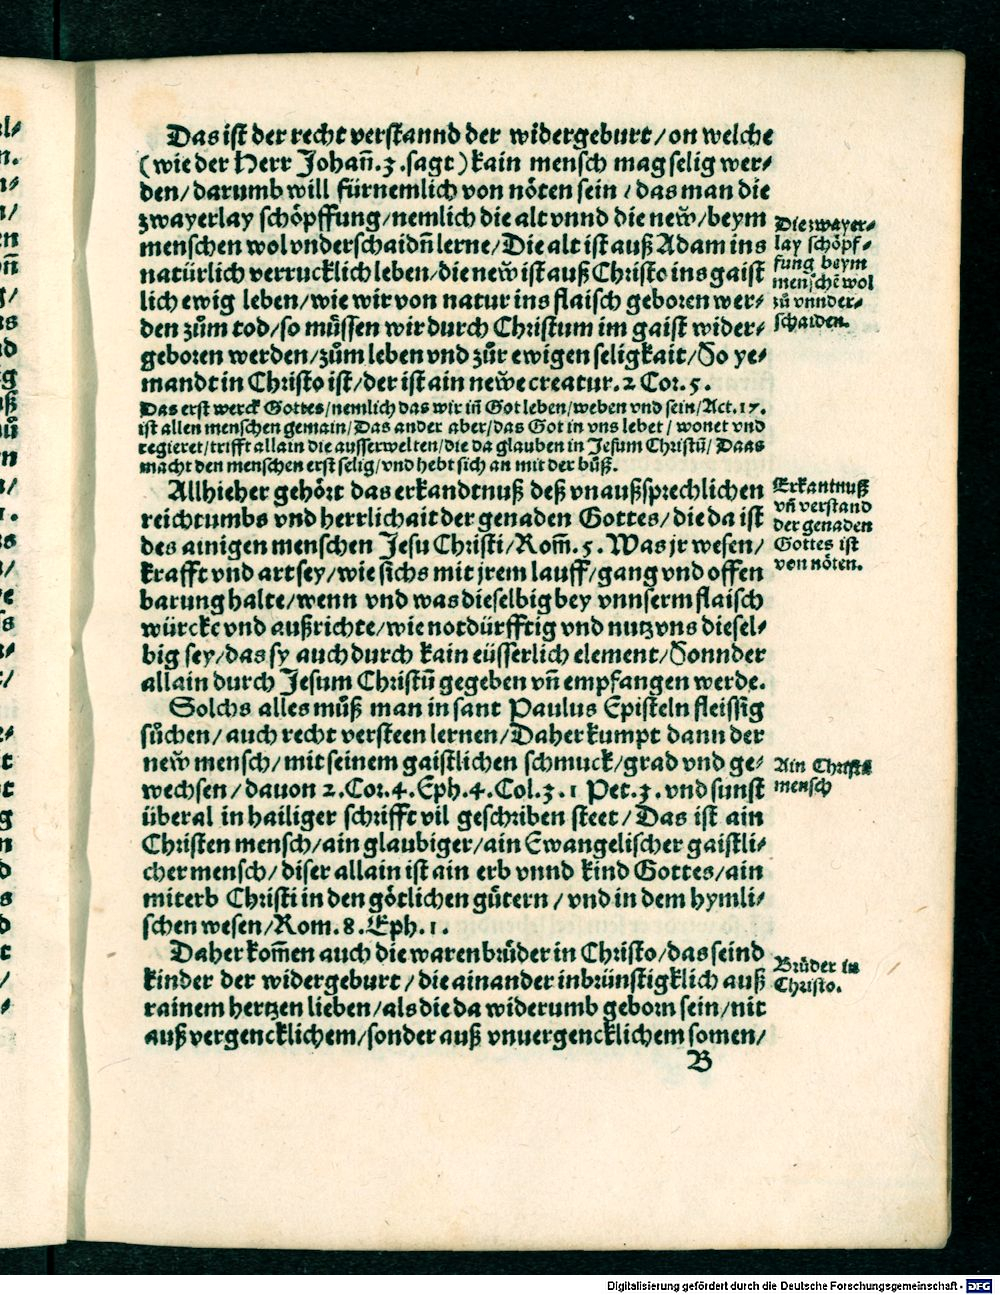 Das ist der recht verstannd der widergeburt/on welche
(wie der Herr Johañ.3.sagt) kain mensch mag selig wer⸗
den/darumb will fürnemlich von nöten sein/das man die
zwayerlay schöpffung/nemlich die alt vnnd die new̆/beym
menschen wol vnderschaidñ lerne/Die alt ist auß Adam ins
natürlich verrucklich leben/die new̆ ist auß Christo ins gaist
lich ewig leben/wie wir von natur ins flaisch geboren wer⸗
den zům tod/so můssen wir durch Christum im gaist wider⸗
geboren werden/zům leben vnd zůr ewigen seligkait/So ye⸗
mandt in Christo ist/der ist ain new̆e creatur.2 Cor.5.
Das erst werck Gottes/nemlich das wir iñ Got leben/weben vnd sein/Act.17.
ist allen menschen gemain/Das ander aber/das Got in vns lebet/wonet vnd
regieret/trifft allain die ausserwelten/die da glauben in Jesum Christū/Daas
macht den menschen erst selig/vnd hebt sich an mit der bůß.
Allhieher gehört das erkandtnuß deß vnaußsprechlichen
reichtumbs vnd herrlichait der genaden Gottes/die da ist
des ainigen menschen Jesu Christi/Rom̄.5.Was jr wesen/
krafft vnd art sey/wie sichs mit jrem lauff/gang vnd offen
barung halte/wenn vnd was dieselbig bey vnnserm flaisch
würcke vnd außrichte/wie notdürfftig vnd nutz vns diesel⸗
big sey/das sy auch durch kain eüsserlich element/Sonnder
allain durch Jesum Christū gegeben vñ empfangen werde.
Solchs alles můß man in sant Paulus Episteln fleissig
sůchen/auch recht versteen lernen/Daher kumpt dann der
new̆ mensch/mit seinem gaistlichen schmuck/grad vnd ge⸗
wechsen/dauon 2.Cor.4.Eph.4.Col.3.1 Pet.3.vnd sunst
überal in hailiger schrifft vil geschriben steet/Das ist ain
Christen mensch/ain glaubiger/ain Ewangelischer gaistli⸗
cher mensch/diser allain ist ain erb vnnd kind Gottes/ain
miterb Christi in den götlichen gütern/vnd in dem hymli⸗
schen wesen/Rom.8.Eph.1.
Daher kom̄en auch die waren brůder in Christo/das seind
kinder der widergeburt/die ainander inbrünstigklich auß
rainem hertzen lieben/als die da widerumb geborn sein/nit
auß vergencklichem/sonder auß vnuergencklichem somen/
B
Die zwayer⸗
lay schöpf⸗
fung beym
menschē wol
zů vnnder⸗
schaiden.
Erkantnuß
vñ verstand
der genaden
Gottes ist
von nöten.
Ain Christē
mensch
Brůder in
Christo.
Digitalisierung gefördert durch die Deutsche Forschungsgemeinschaft - DFG